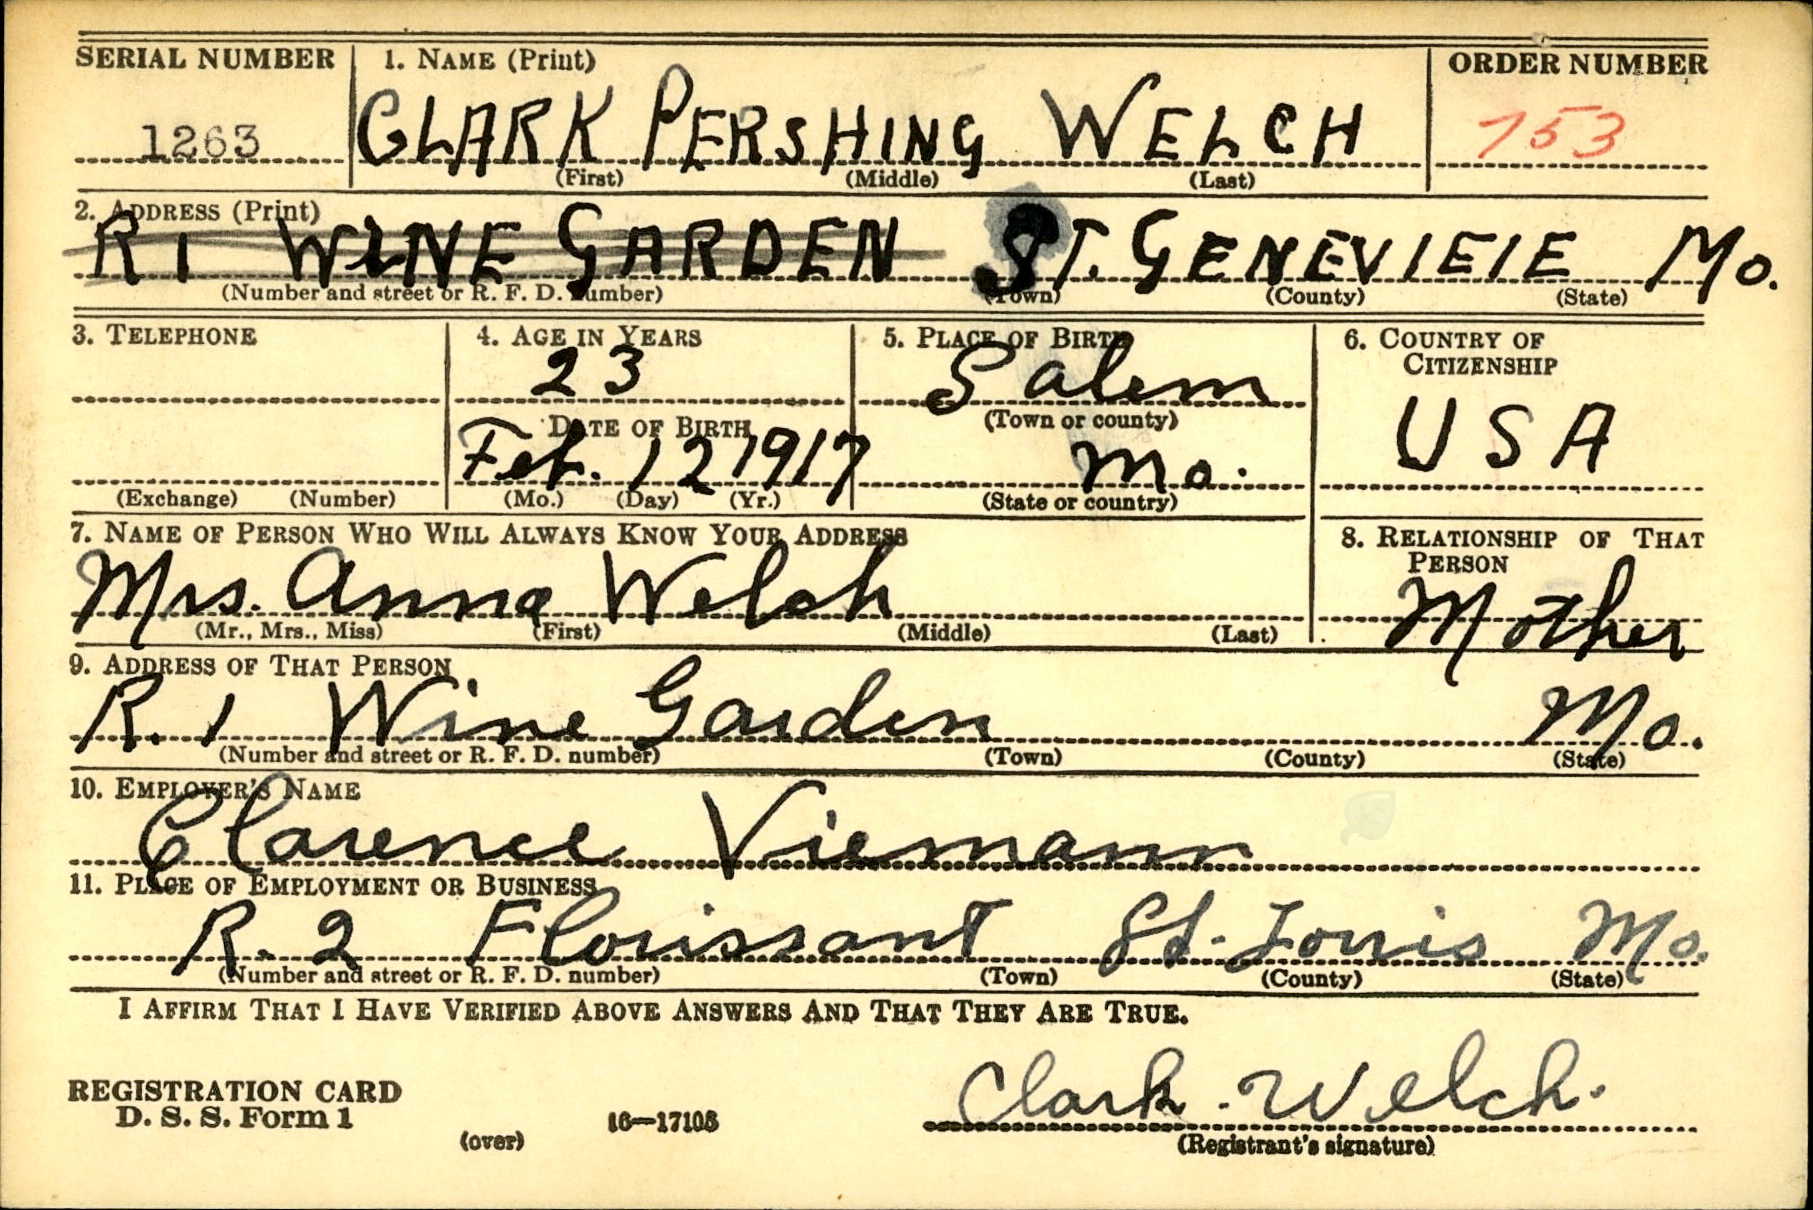 SERIAL NUMBER 1. NAME (Print) ORDER NUMBER
1263 CLARK PERSHING WELCH 753
(First) (Middle) (Last)
2. ADDRESS (Print)
R 1 WINE GARDEN ST. GENEVIEIE Mo.
(Number and street or R. F. D. number) (Town) (County) (State)
3. TELEPHONE 4. AGE IN YEARS 5. PLACE OF BIRTH 6. COUNTRY OF
CITIZENSHIP
23 Salem
(Town or county)
DATE OF BIRTH USA
Feb. 12 1917 Mo.
(Exchange) (Number) (Mo.) (Day) (Yr.) (State or country)
7. NAME OF PERSON WHO WILL ALWAYS KNOW YOUR ADDRESS 8. RELATIONSHIP OF THAT
PERSON
Mrs. Anna Welch Mother
(Mr., Mrs., Miss) (First) (Middle) (Last)
9. ADDRESS OF THAT PERSON
R. 1 Wine Garden Mo.
(Number and street or R. F. D. number) (Town) (County) (State)
10. EMPLOYER'S NAME
Clarence Viemann
11. PLACE OF EMPLOYMENT OR BUSINESS
R. 2 Florissant St. Louis Mo.
(Number and street or R. F. D. number) (Town) (County) (State)
I AFFIRM THAT I HAVE VERIFIED ABOVE ANSWERS AND THAT THEY ARE TRUE.
REGISTRATION CARD
D. S. S. Form 1 16—17105
(over)
Clark Welch
(Registrant's signature)